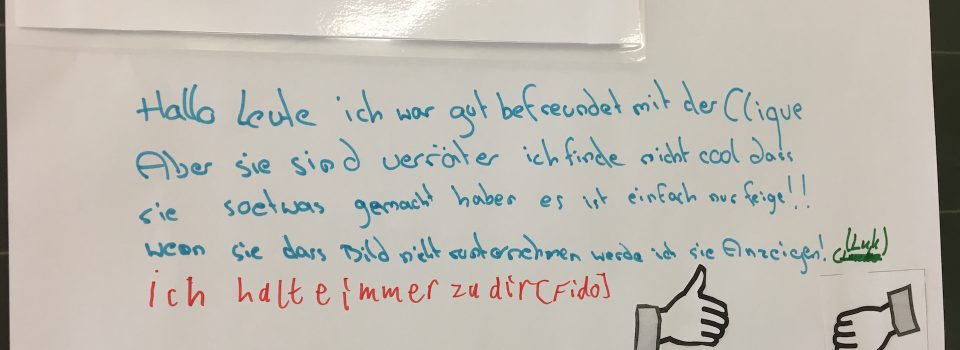 Hallo Leute ich war gut befreundet mit der Clique
Aber sie sind verräter ich finde nicht cool dass
sie soetwas gemacht haben es ist einfach nur feige!!
wenn sie dass Bild nicht runternehmen werde ich sie Anzeigen! (Luk)
ich halte immer zu dir (Fido)